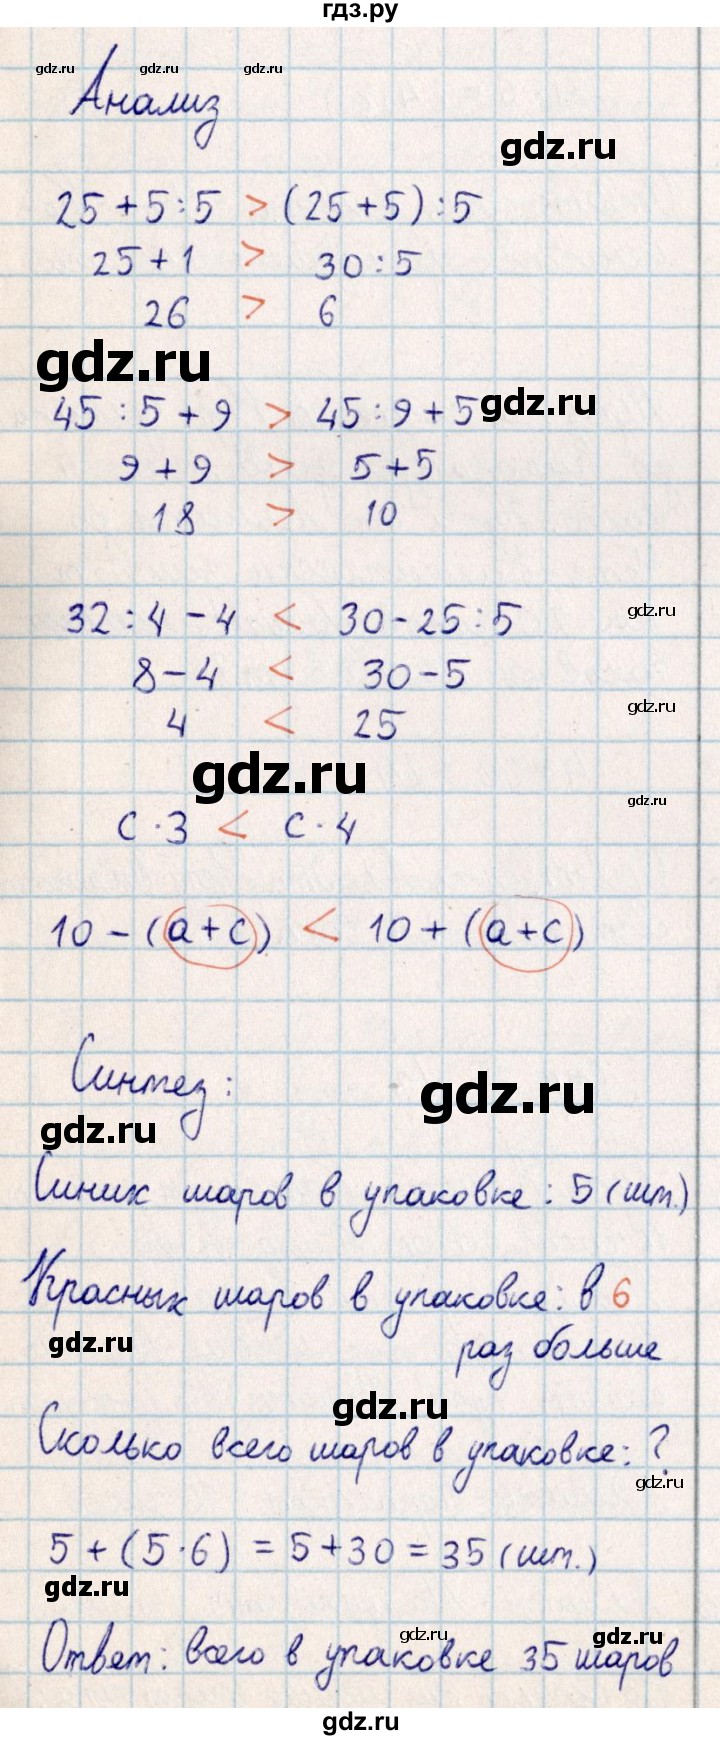 гдз.ру
gdz.ru gdz.ru gdz.ru
Анализ
gdz.ru
25+5:5 > (25+5):5
25+1 > 30:5
26 > 6
gdz.ru
45:5+9 > 45:9+5
gdz.ru
9+9 > 5+5
18 > 10
32:4-4 < 30-25:5
gdz.ru
8-4 < 30-5
4 < 25
gdz.ru
gdz.ru
gdz.ru
c·3 < c·4
10-(a+c) < 10+(a+c)
Синтез:
gdz.ru
gdz.ru
Синих шаров в упаковке: 5 (шт.)
Красных шаров в упаковке: в 6
gdz.ru
раз больше
gdz.ru
Сколько всего шаров в упаковке: ?
gdz.ru
5+(5·6)=5+30=35 (шт.)
gdz.ru
gdz.ru
gdz.ru
Ответ: всего в упаковке 35 шаров
gdz.ru